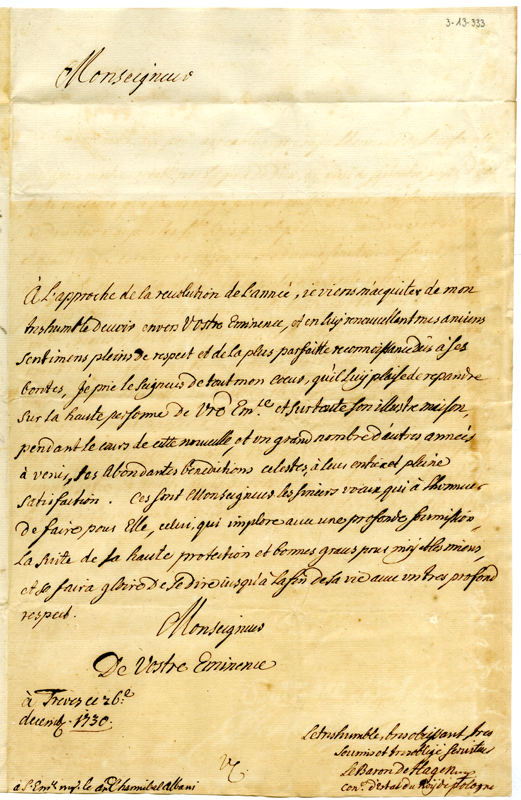 3-13-333
Monseigneur
À L'approche de la revolution de L'anneé, ie viens m'acquiter de mon
treshumble devoir envers Vostre Eminence, et en luy renouvellant mes anciens
sentimens pleins de respect et de la plus parfaitte reconnoissance deüs à ses
bontes, je prie le Seigneur de tout mon coeur, qu'il Luy plaise de repandre
sur la haute personne de Vre Em.ce et sur toute son illustre maison,
pendant le cours de cette nouvelle, et un grand nombre d'autres anneés
à venir, ses Abondantes benedictions celestes, à leur entiere et pleine
satisfaction. Ces sont Monseigneur les sinceres voeux, qui à l'honneur
de faire pour Elle, celui, qui implore avec une profonde soumission,
la suite de sa haute protection et bonnes graces pour moy et les miens
et se faira gloire de se dire iusqu'à la fin de la vie avec un tres profond
respect.
Monseigneur
De Vostre Eminence
à Treves ce 26.e
decemb. 1730.
Le treshumble, tres obeissant, tres
soumis et tres obligé serviteur
Le Baron de Hagen
con.r d'estat du Roy de Pologne
à S. Em.ce mgr. le Card. Hannibal Albani